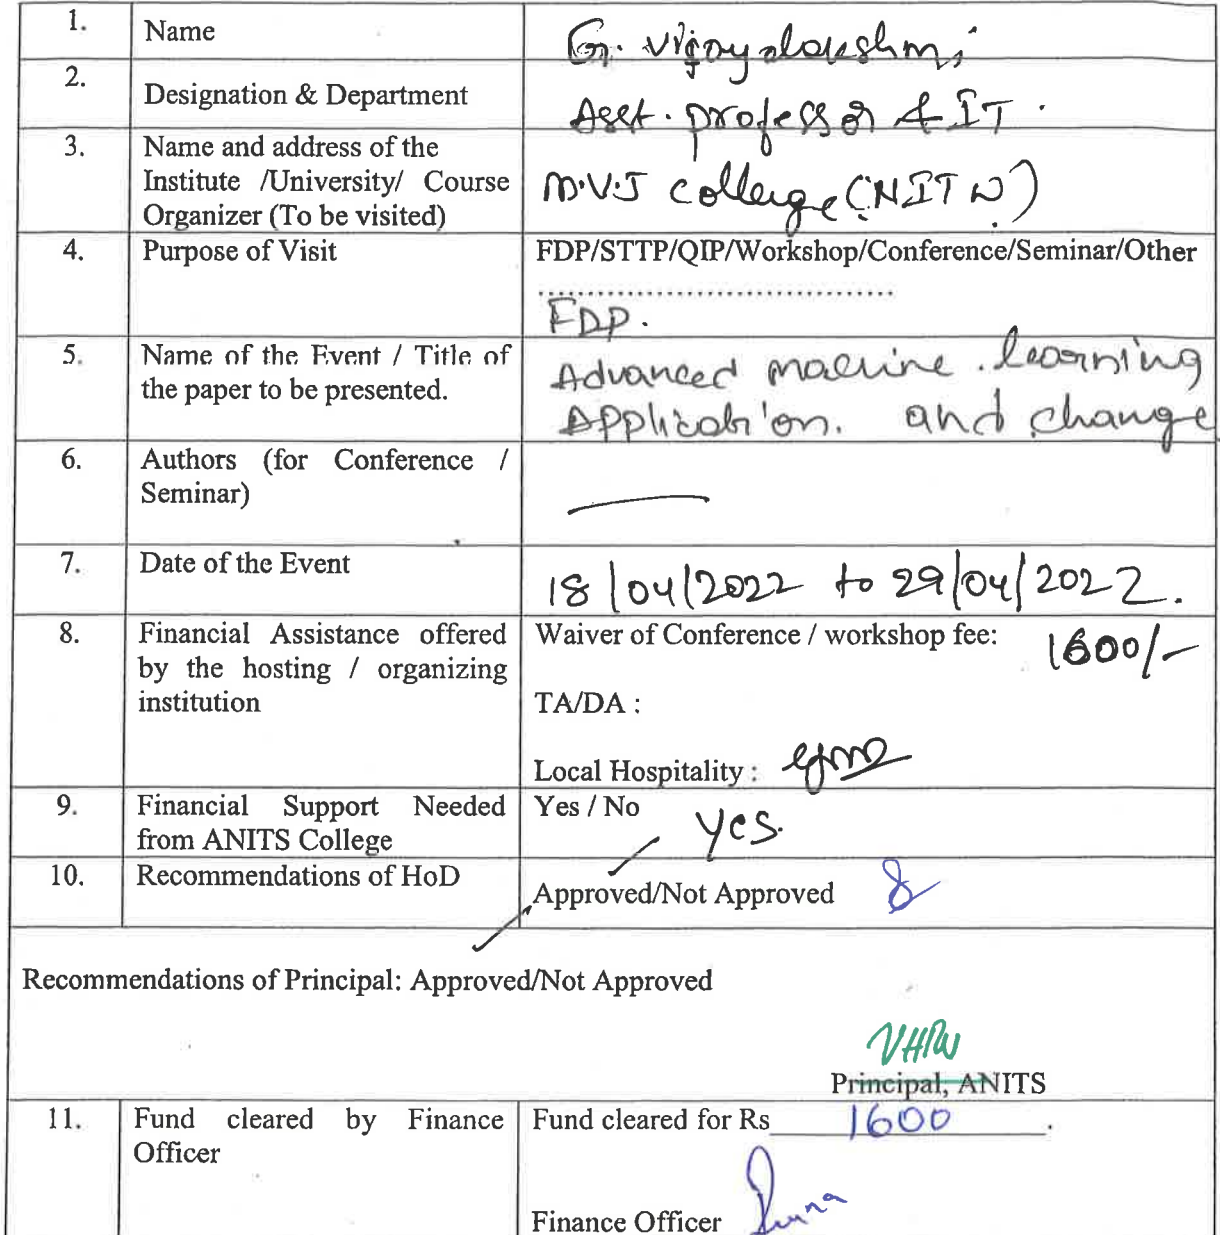 1. Name G. Vijayalakshmi
2. Designation & Department Asst. professor & IT.
3. Name and address of the
Institute /University/ Course
Organizer (To be visited) M.V.J college (NITW)
4. Purpose of Visit FDP/STTP/QIP/Workshop/Conference/Seminar/Other
..........................................
FDP.
5. Name of the Event / Title of
the paper to be presented. Advanced machine learning
Application. and change
6. Authors (for Conference /
Seminar) —
7. Date of the Event 18/04/2022 to 29/04/2022.
8. Financial Assistance offered
by the hosting / organizing
institution Waiver of Conference / workshop fee: 1600/-
TA/DA :
Local Hospitality :
9. Financial Support Needed
from ANITS College Yes / No yes.
10. Recommendations of HoD Approved/Not Approved
Recommendations of Principal: Approved/Not Approved
Principal, ANITS
11. Fund cleared by Finance
Officer Fund cleared for Rs 1600.
Finance Officer